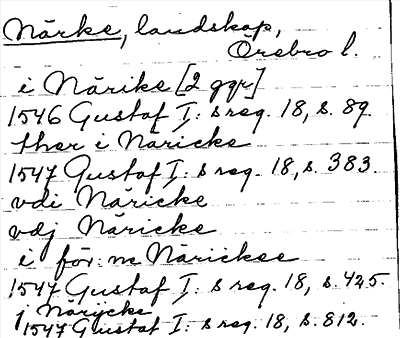 Närke, landskap,
Örebro l.
i Närike [2 ggr]
1546 Gustaf I: s reg. 18, s. 89.
ther i Näricke
1547 Gustaf I: s reg. 18, s. 383.
vdi Näricke
vdj Näricke
i för: ne Närickee
1547 Gustaf I: s reg. 18, s. 425.
j Närijcke
1547 Gustaf I: s reg. 18, s. 812.